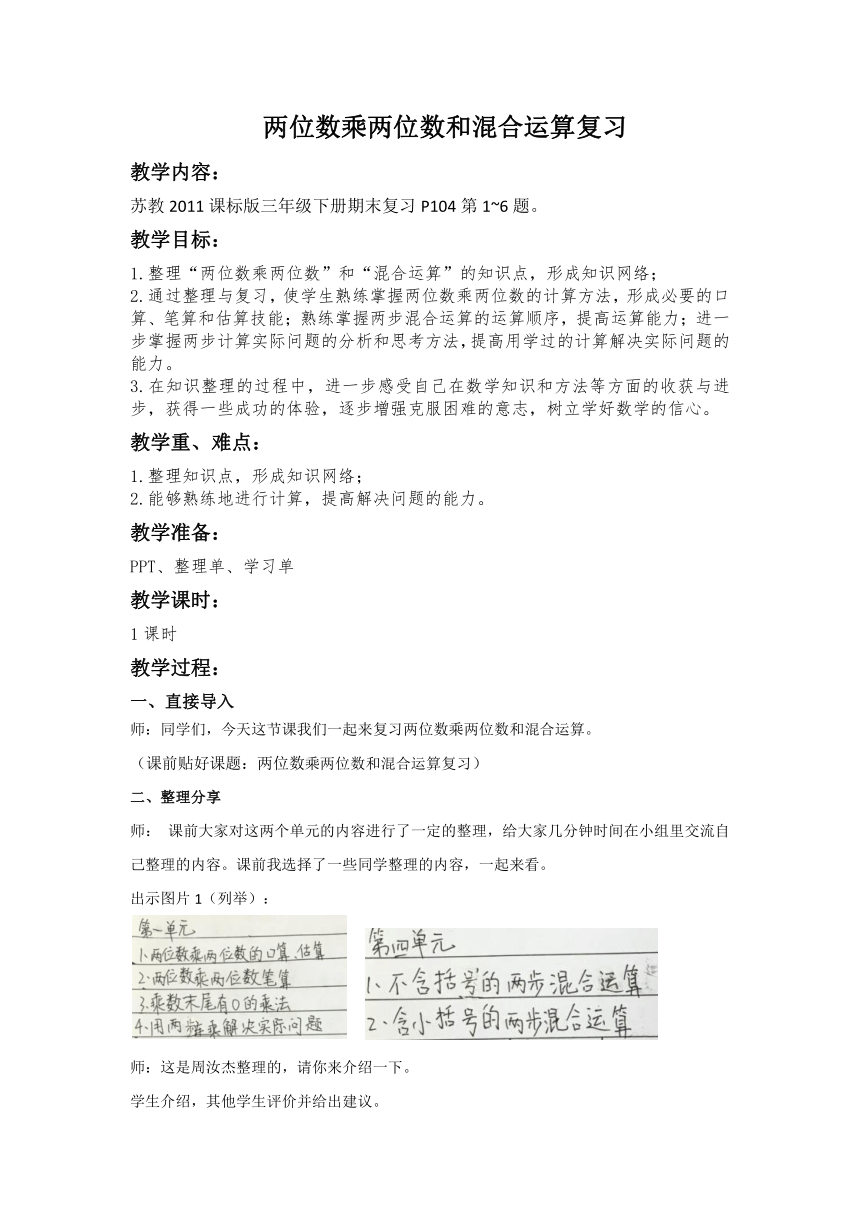 两位数乘两位数和混合运算复习
教学内容：
苏教 2011 课标版三年级下册期末复习 P104 第 1~6 题。
教学目标：
1.整理“两位数乘两位数”和“混合运算”的知识点，形成知识网络；
2.通过整理与复习，使学生熟练掌握两位数乘两位数的计算方法，形成必要的口
算、笔算和估算技能；熟练掌握两步混合运算的运算顺序，提高运算能力；进一
步掌握两步计算实际问题的分析和思考方法，提高用学过的计算解决实际问题的
能力。
3.在知识整理的过程中，进一步感受自己在数学知识和方法等方面的收获与进
步，获得一些成功的体验，逐步增强克服困难的意志，树立学好数学的信心。
教学重、难点：
1.整理知识点，形成知识网络；
2.能够熟练地进行计算，提高解决问题的能力。
教学准备：
PPT、整理单、学习单
教学课时：
1 课时
教学过程：
一、直接导入
师：同学们，今天这节课我们一起来复习两位数乘两位数和混合运算。
（课前贴好课题：两位数乘两位数和混合运算复习）
二、整理分享
师： 课前大家对这两个单元的内容进行了一定的整理，给大家几分钟时间在小组里交流自
己整理的内容。课前我选择了一些同学整理的内容，一起来看。
出示图片 1（列举）：
第一单元
1、两位数乘两位数的口算、估算
2、两位数乘两位数笔算
3、乘数末尾有0的乘法
4、用两步连乘解决实际问题
第四单元
1、不含括号的两步混合运算
2、含小括号的两步混合运算
师：这是周汝杰整理的，请你来介绍一下。
学生介绍，其他学生评价并给出建议。